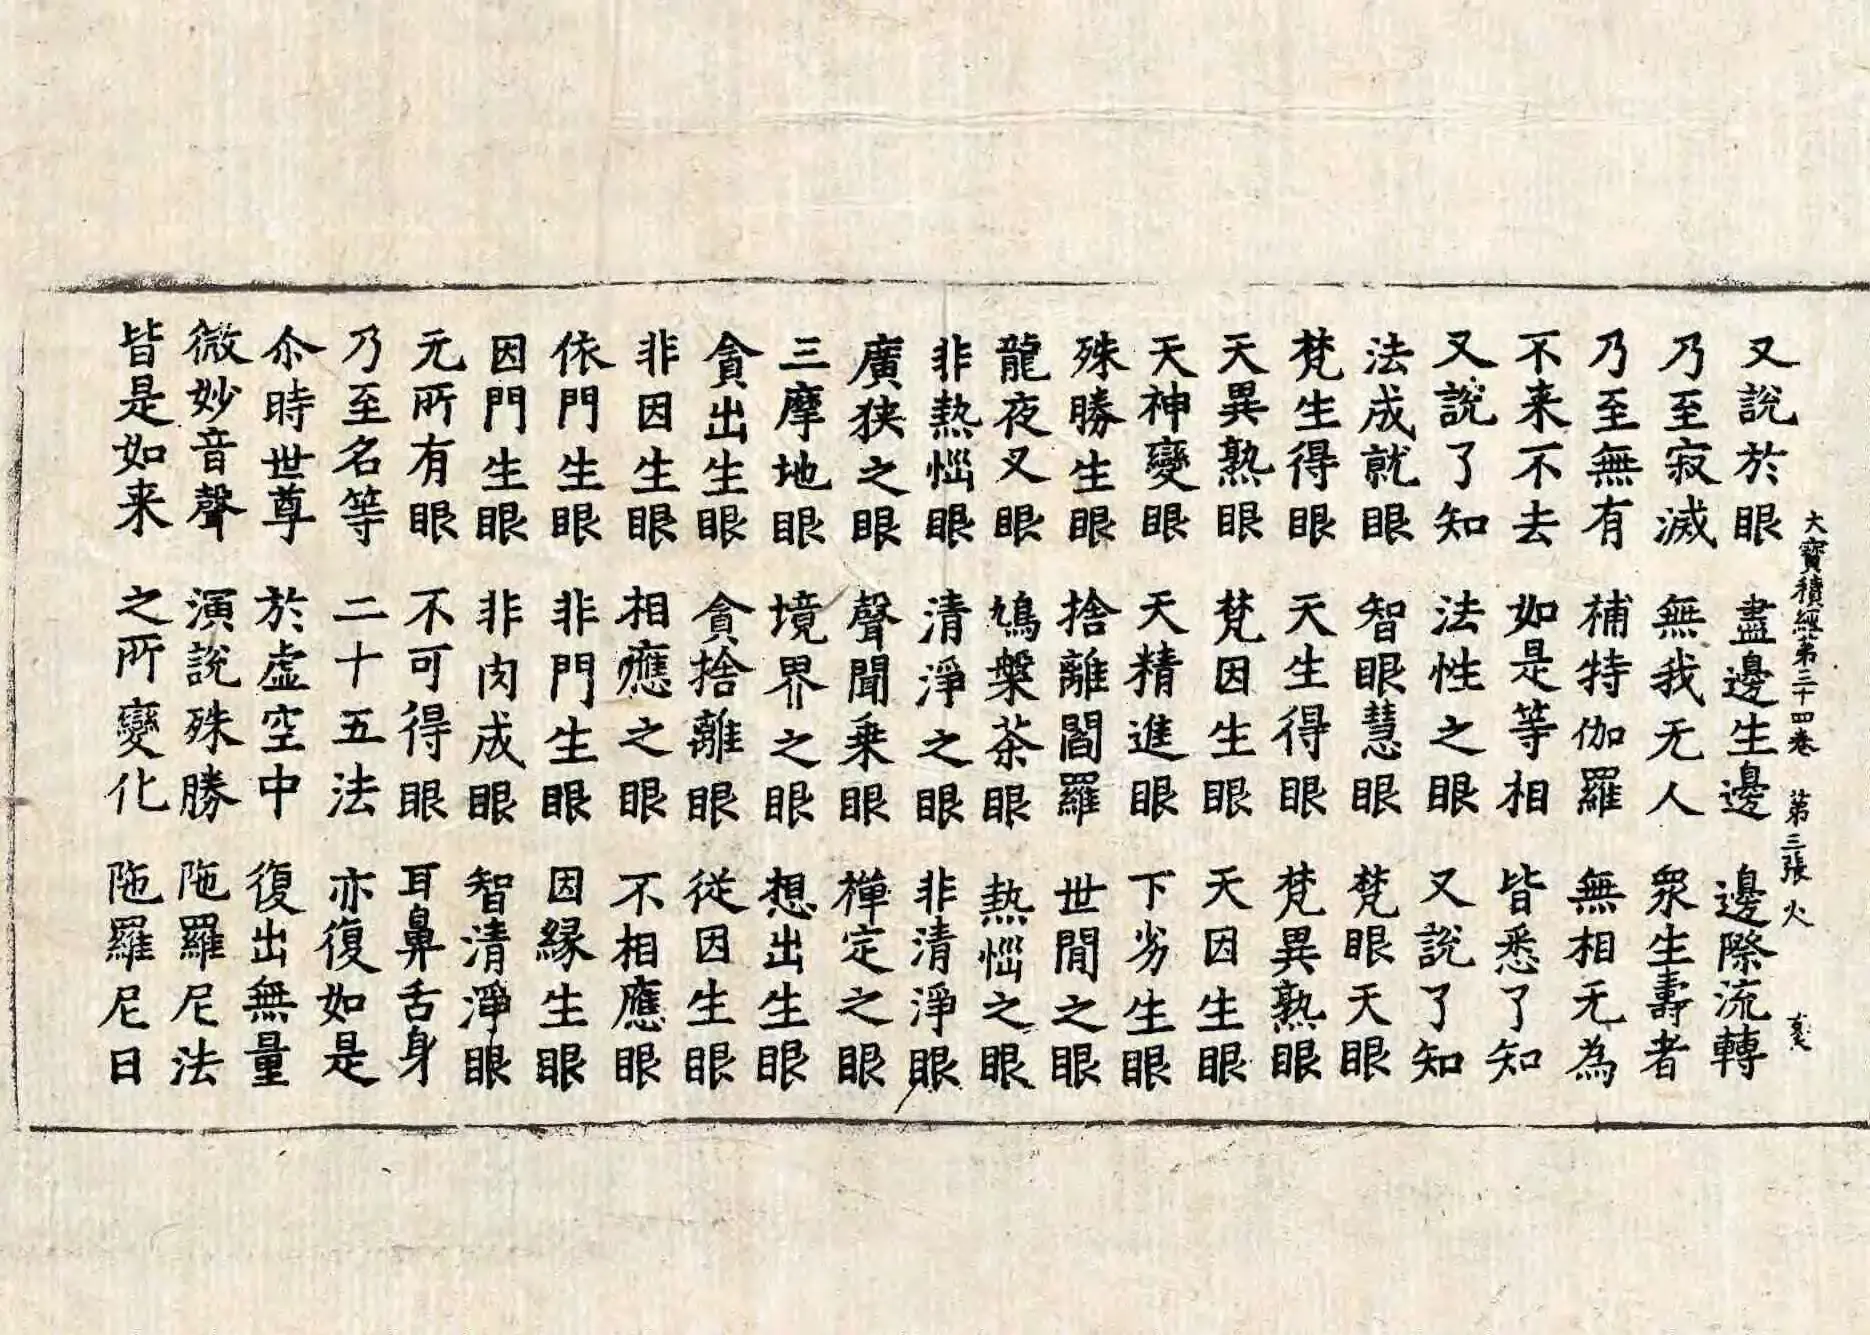 大寶積經第三十四卷 第三張 火
又說於眼 盡邊生邊 邊際流轉
乃至寂滅 無我无人 衆生壽者
乃至無有 補特伽羅 無相无為
不来不去 如是等相 皆悉了知
又說了知 法性之眼 又說了知
法成就眼 智眼慧眼 梵眼天眼
梵生得眼 天生得眼 梵異熟眼
天異熟眼 梵因生眼 天因生眼
天神變眼 天精進眼 下劣生眼
殊勝生眼 捨離閻羅 世間之眼
龍夜叉眼 鳩槃茶眼 熱惱之眼
非熱惱眼 清淨之眼 非清淨眼
廣狭之眼 聲聞乗眼 禪定之眼
三摩地眼 境界之眼 想出生眼
貪出生眼 貪捨離眼 従因生眼
非因生眼 相應之眼 不相應眼
依門生眼 非門生眼 因縁生眼
因門生眼 非肉成眼 智清淨眼
无所有眼 不可得眼 耳鼻舌身
乃至名等 二十五法 亦復如是
尒時世尊 於虛空中 復出無量
微妙音聲 演說殊勝 陁羅尼法
皆是如来 之所變化 陁羅尼曰